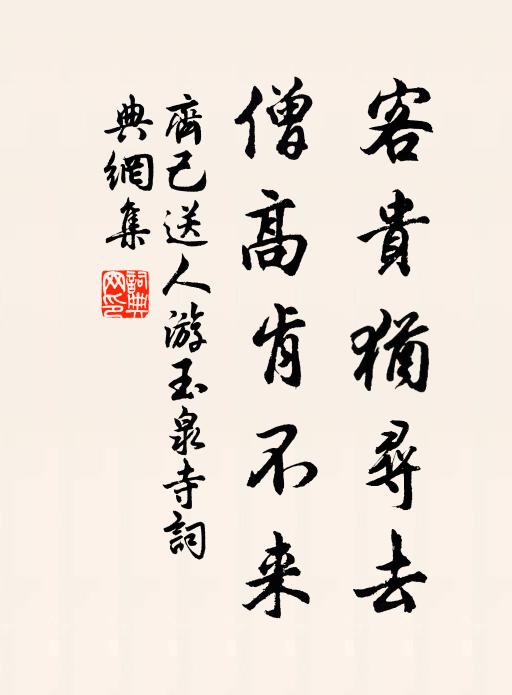 客貴猶尋去
僧高肯不来
齊己送人游玉泉寺詞
典網集
詞典网印